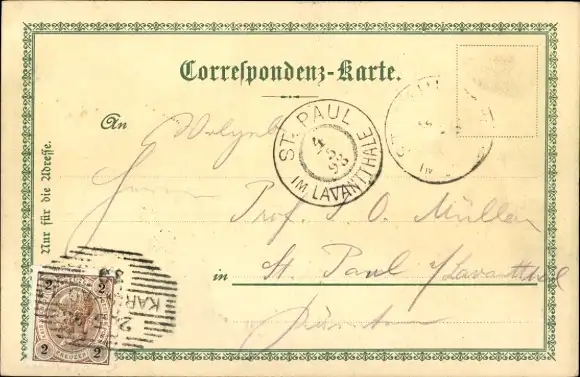 Correspondenz-Karte.
An
Herrn
Prof. P. O. Müller
in St. Paul i/Lavantthal
Kärnten
Nur für die Adresse.
ST. PAUL
98
IM LAVANTTHALE
IM
KAR
2 2
KREUZER
2 2